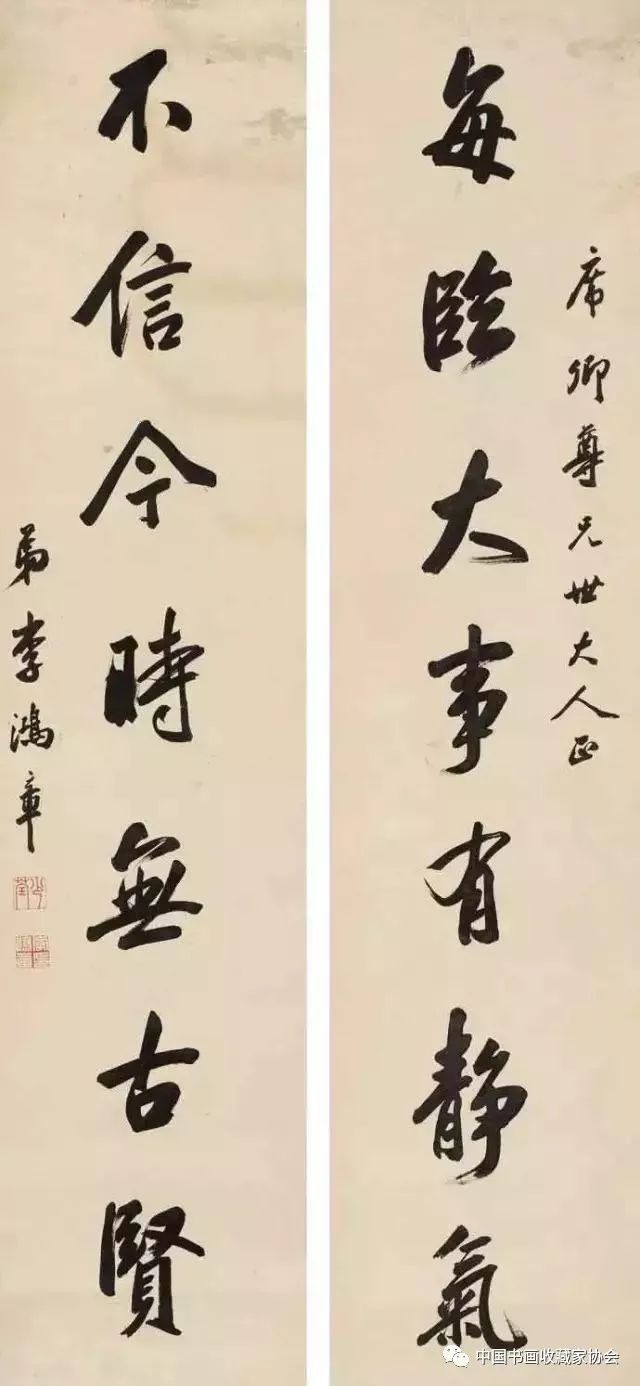 席卿尊兄世大人正
每臨大事有静氣
不信今時無古賢
弟李鴻章
中国书画收藏家协会